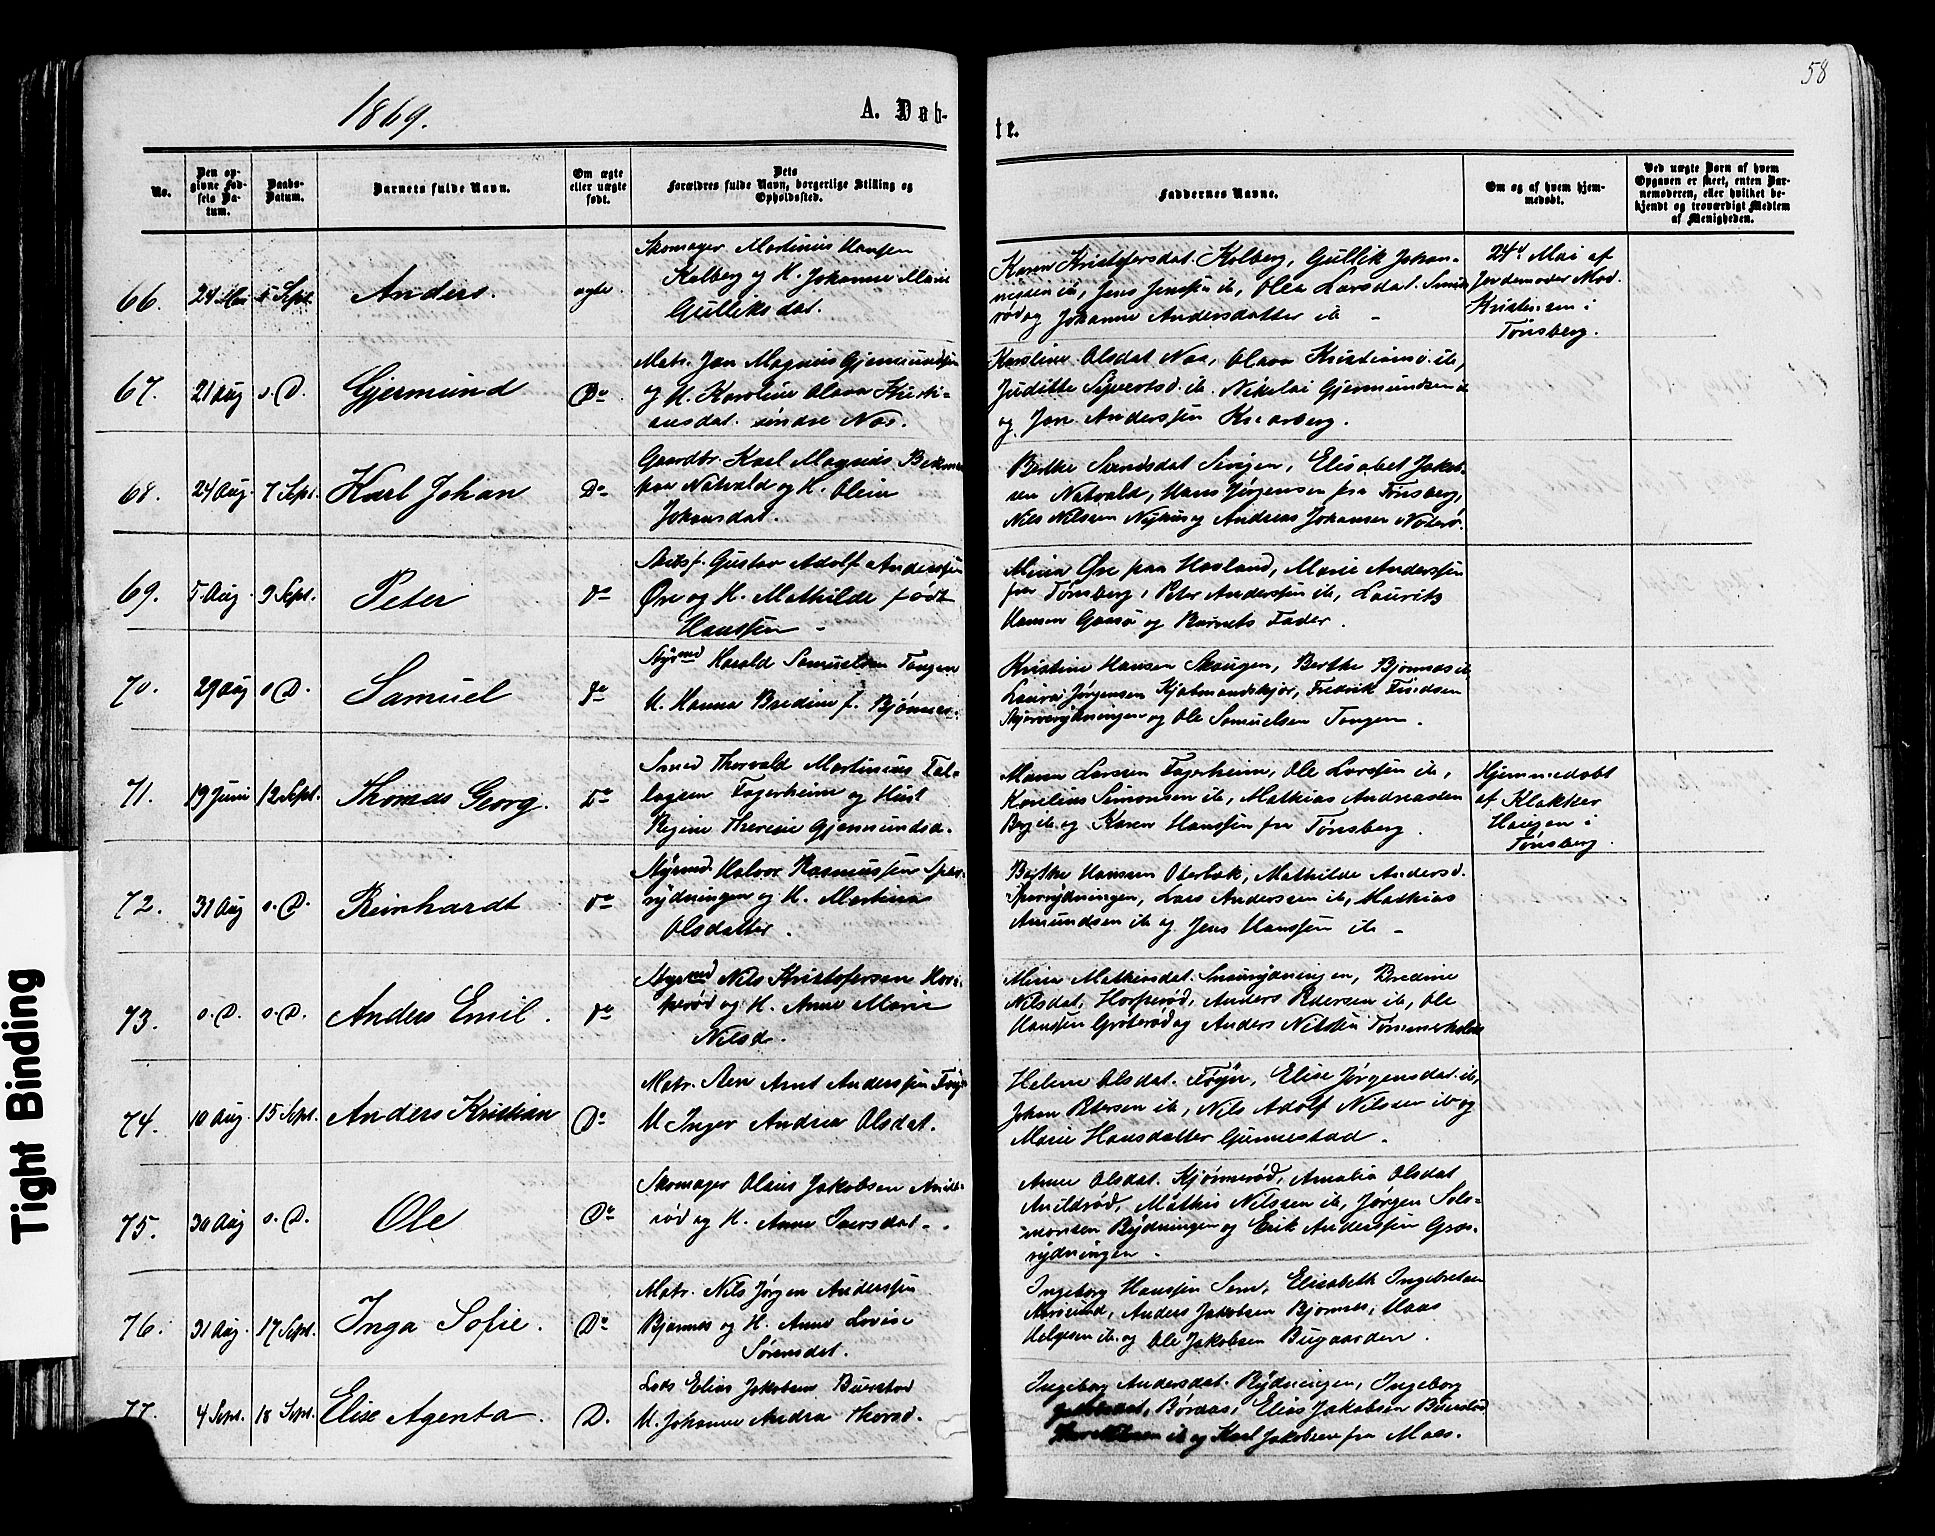 58
1869.
A. Døb-
te.
No.
Den op-
givne Fød-
sels Da-
tum.
Daabs-
Datum.
Barnets fulde Navn.
Om ægte
eller uægte
født.
Dets
Forældres fulde Navn, borgerlige Stilling og
Opholdssted.
Faddernes Navne.
Om og af hvem hjem-
medøbt.
Ved uægte Børn af hvem
Opgaven er skeet, enten Bar-
nemoderen, eller hvilket be-
kjendt og troværdigt Medlem
af Menigheden.
66. 24 Mai 5 Sept. Anders. ægte.
Skomager Martinus Hansen
Kolberg og H. Johanne Marie
Gulliksdat.
Karen Kristofersdat. Kolberg, Gullik Johan-
nesen ib, Jens Jenssen ib, Olea Larsdat.
rød og Johanne Andersdatter ib
24de Mai af
Jordemoder Mad.
Kristensen i
Tønsberg.
67. 21 Aug s. D. Gjermund Do
Matr. Jan Magnus Gjermundsen
og H. Karoline Olava Kristi-
ansdat. søndre Nas.
Karoline Olsdat Nas, Olava Kristiansd. ib,
Juditte Syvertsd. ib. Nikolai Gjermundsen ib
og Jan Anderssen Knarberg.
68. 24 Aug. 7 Sept. Karl Johan Do
Gaardbr. Karl Magnus
paa Natvald og H. Olein
Johansdat.
Berthe Svendsdat, Elisabet Jakob-
sen Natvald, Hans Jørgensen fra Tønsberg,
Nils Nilssen Nyhus og Andreas Johansen Nøterø.
69. 5 Aug. 9 Sept. Peter do
Gustav Adolf Anderssen
Øre og H. Mathilde født
Hanssen
Mina Øre paa Havland, Marie Anderssen
fra Tønsberg, Peter Anderssen ib, Laurits
Hansen Gaasø og Barnets Fader.
70. 29 Aug s. D. Samuel do
Styrmd Harald Samuelsen Tangen
H. Hanna Bredine f. Bjønnes.
Kristine Hansen Skaugen, Berthe Bjønnes ib
Laura Jørgensen Kjøbmandskjær, Fredrik
og Ole Samuelsen Tangen.
71. 19 Juni 12 Sept. Thomas Georg. Do
Smed Thorvald Martinius Tol-
lagsen Fagerheim og Hust
Regine Theresie Gjermundsd.
Maren Larssen Fagerheim, Ole Larssen ib,
Karelius Simonsen ib, Mathias Andreassen
Berg ib og Karen Hanssen fra Tønsberg.
Hjemmedøbt
af Klokker
Haugen i
Tønsberg.
72. 31 Aug s. D. Reinhardt do
Styrmd. Halvor Rasmussen
rydningen og H. Martine
Olsdatter.
Berthe Hanssen Oterbæk, Mathilde Andersd.
Lars Anderssen ib, Mathias
Amundsen ib og Jens Hanssen ib
73. s. D. s. D. Anders Emil. do
Styrmd Nils Kristofersen
og H. Anne Marie
Nilsd.
Mina Mathiasdat. Bredine
Nilsdat, Anders Pedersen ib, Ole
Hanssen og Anders Nilssen Tømmerholt
74. 10 Aug. 15 Sept. Anders Kristian Do
Matr. Arnt Anderssen
H. Inger Andrea Olsdat.
Helene Olsdat. Føyn, Elise Jørgensdat. ib,
Johan Petersen ib, Nils Adolf Nilssen ib og
Marie Hansdatter Gunnestad.
75. 30 Aug s. D. Ole Do
Skomager Olaus Jakobsen
rød og H. Anne Iversdat.
Anne Olsdat. Kjønnerød, Amalia Olsdat
Arildrød, Mathis Nilssen ib, Jørgen Salo-
monsen Rydningen og Erik Anderssen
rydningen
76. 31 Aug. 17 Sept. Inga Sofie. Do
Matr. Nils Jørgen Anderssen
Bjønnes og H. Anne Lovise
Sørensdat.
Ingeborg Hanssen Sem, Elisabeth Ingebretsen
Anders Jakobsen Bjønnes, Hans
Helgesen ib og Ole Jakobsen Bugaarden.
77. 4 Sept. 18 Sept. Elise Agenta. D.
Lods Elias Jakobsen Buerstad
H. Johanne Andrea Thorsd.
Ingeborg Andersdat. Rydningen, Ingeborg
Elias Jakobsen Buerstad
ib og Karl Jakobsen fra Moss.
Tight Binding